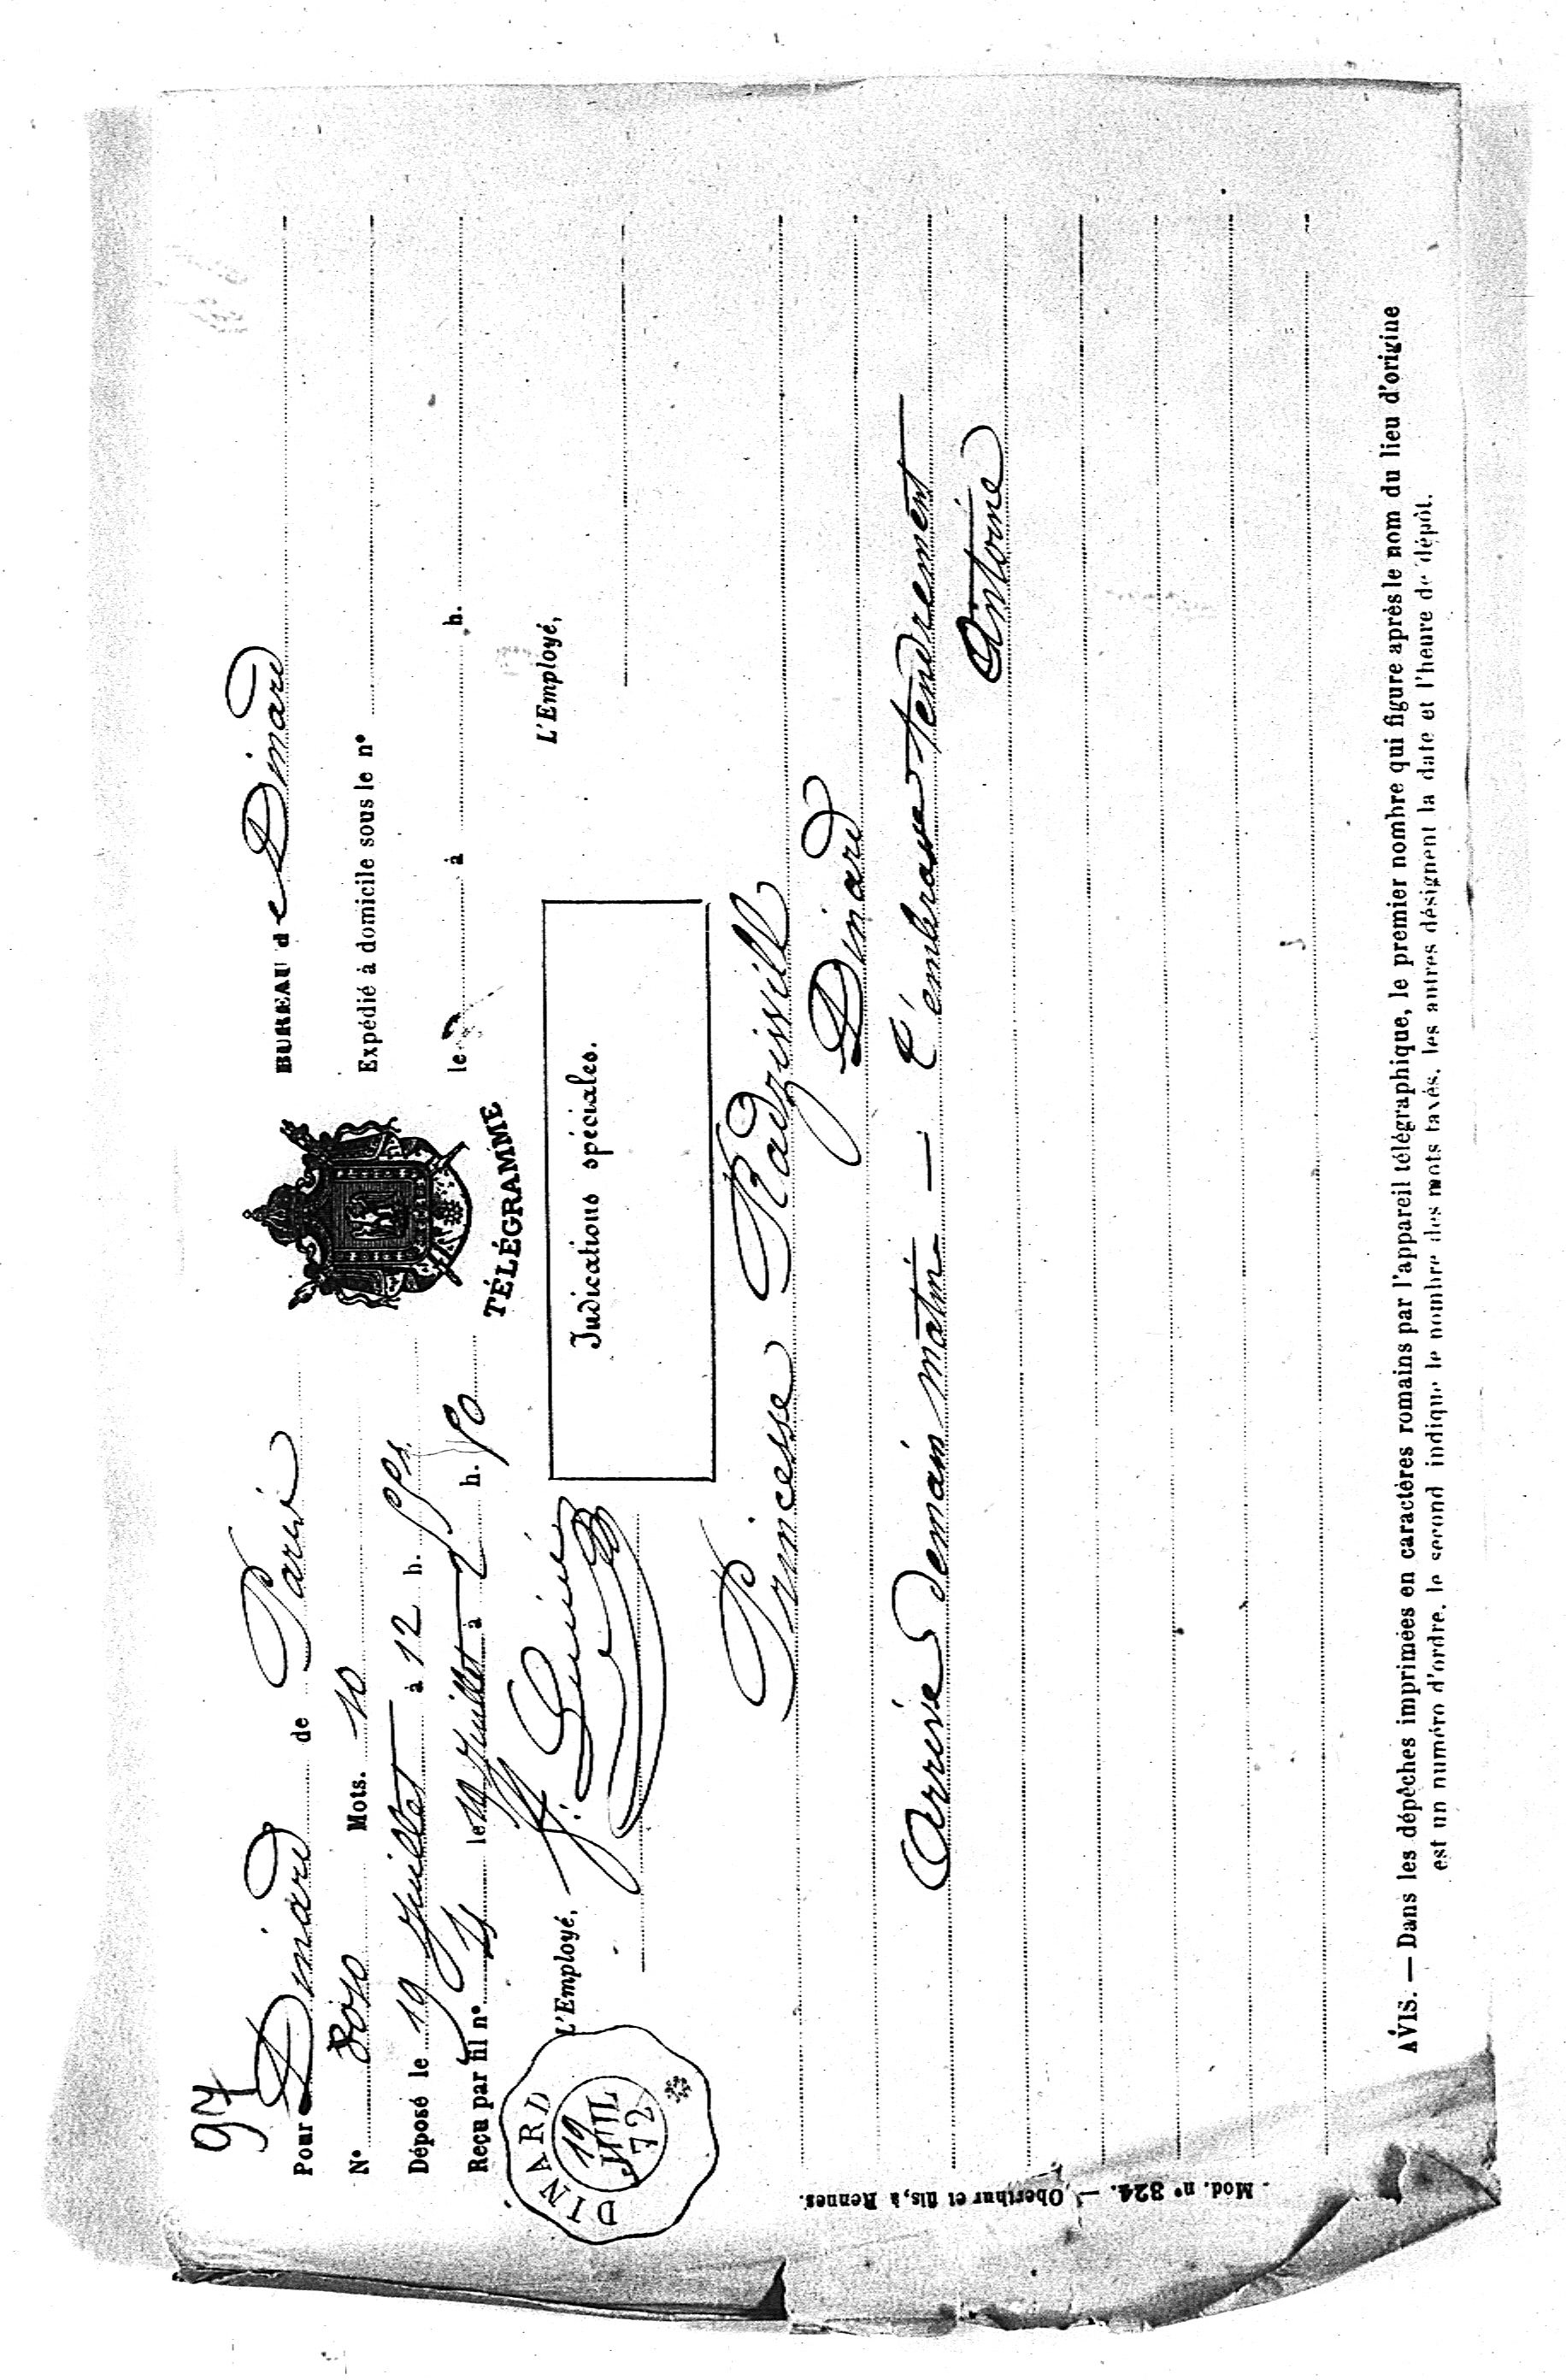 97
Pour Dinard de Paris
N° 8010 Mots. 10
Déposé le 19 Juillet à 12 h.
Reçu par fil n° le 19 Juillet à 2 h. 50
L'Employé,
DINARD
19
JUIL
72
TÉLÉGRAMME
BUREAU de Dinard
Expédié à domicile sous le n°
le à h.
L'Employé,
Indications spéciales.
Princesse Radziwill
Dinard
Arrive demain matin — t'embrasse tendrement
Antoine
AVIS. — Dans les dépêches imprimées en caractères romains par l'appareil télégraphique, le premier nombre qui figure après le nom du lieu d'origine
est un numéro d'ordre, le second indique le nombre des mots taxés, les autres désignent la date et l'heure de dépôt.
Mod. n° 324. — Oberthur et fils, à Rennes.